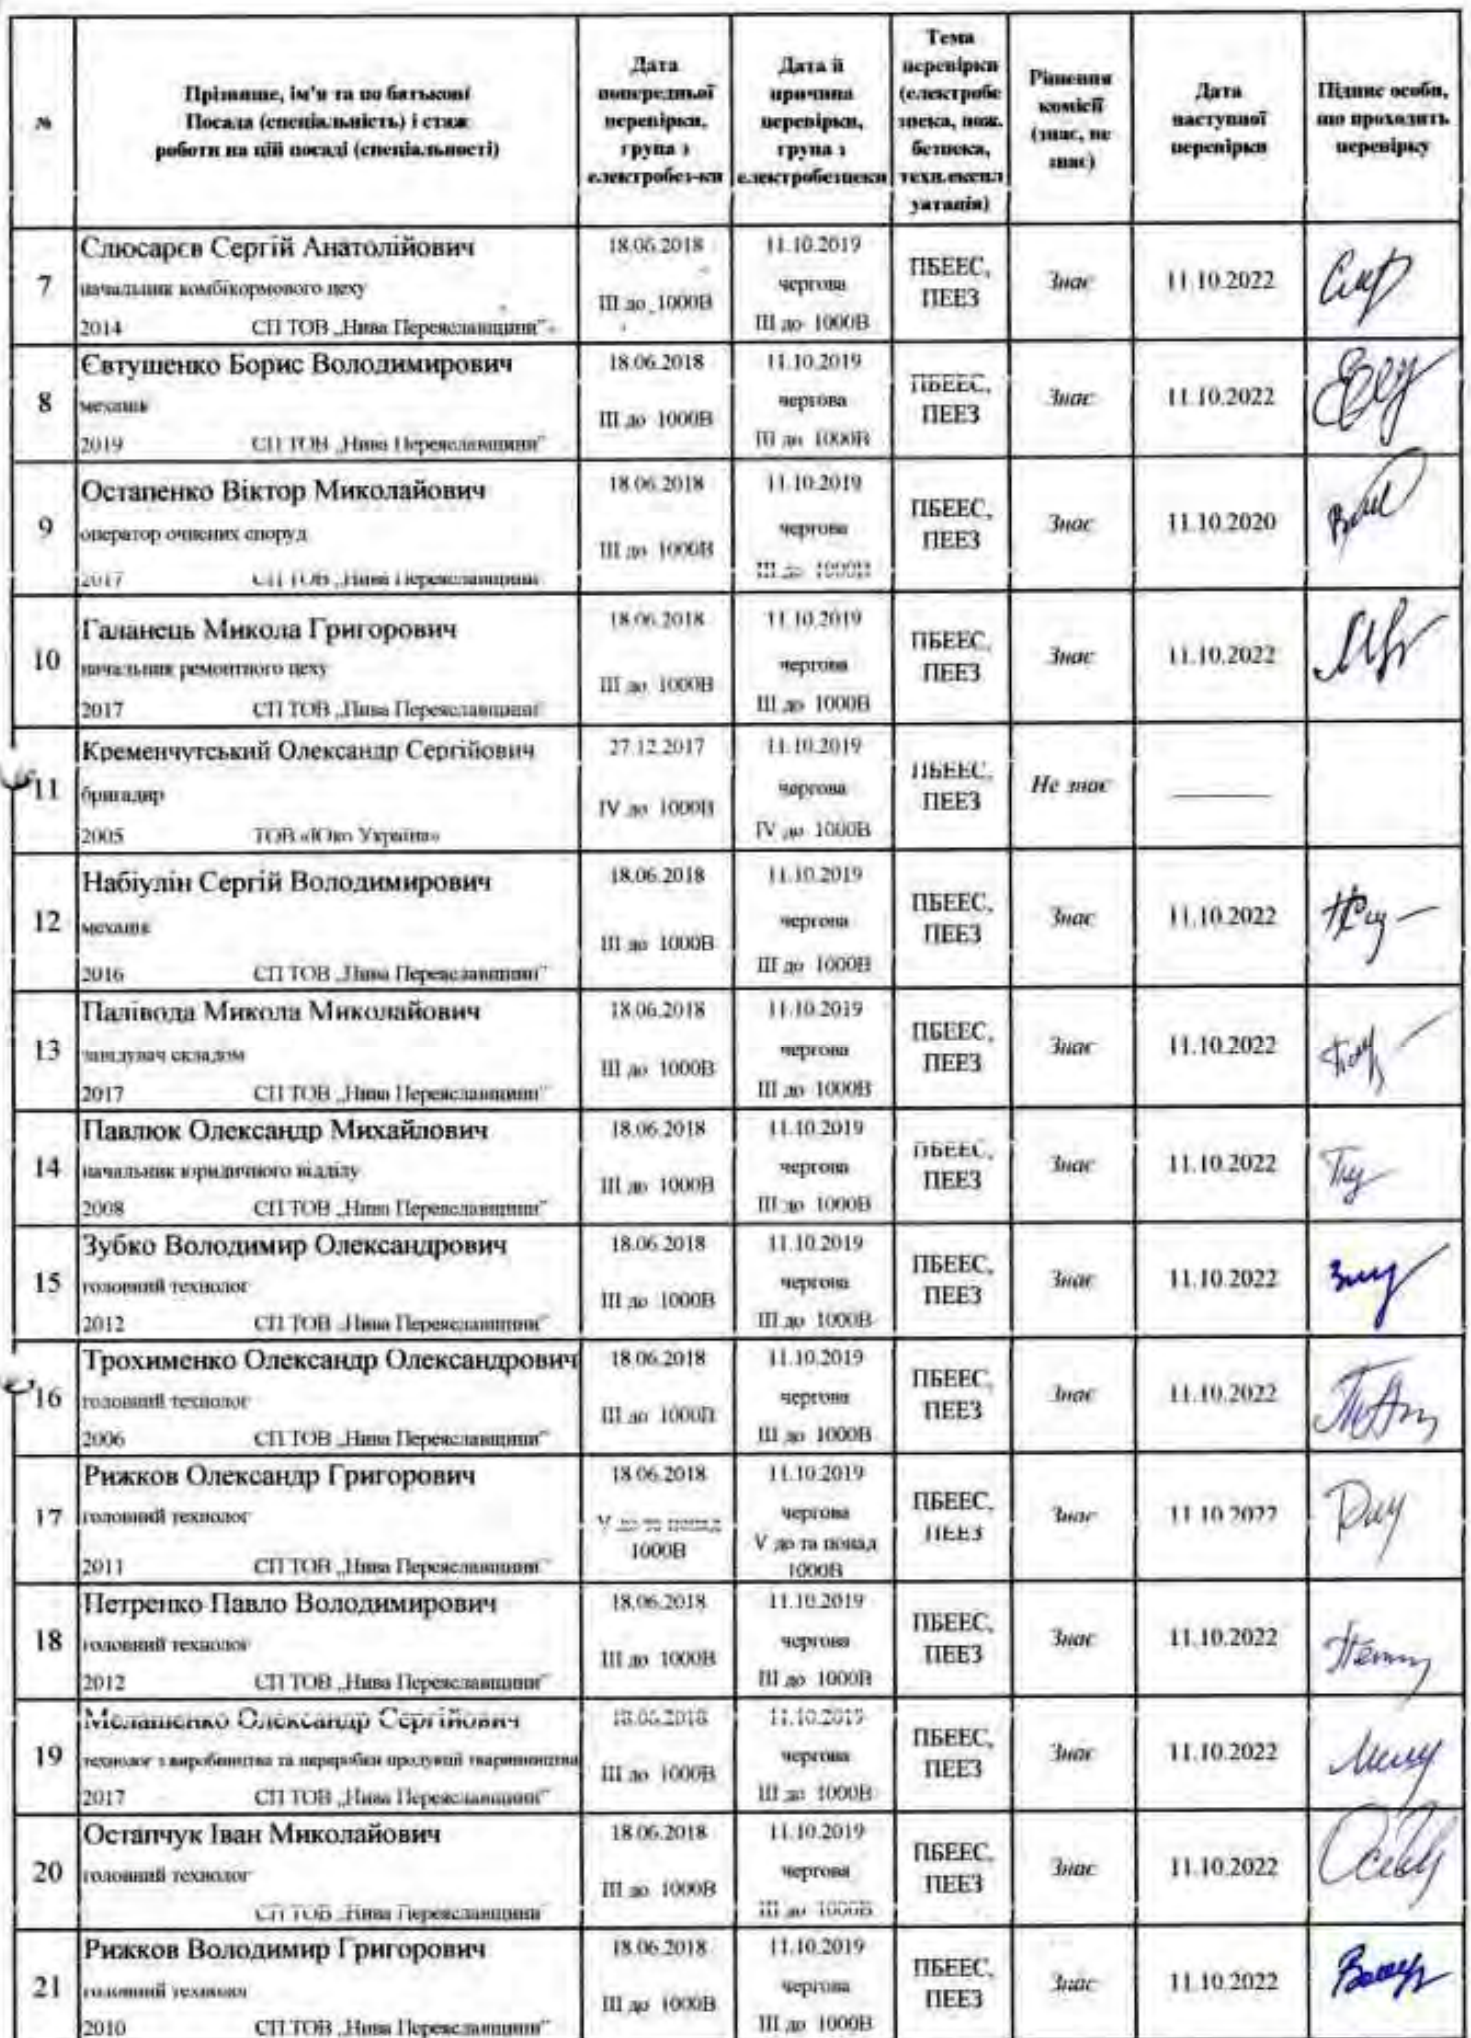 №
Прізвище, ім'я та по батькові
Посада (спеціальність) і стаж
роботи на цій посаді (спеціальності)
Дата
попередньої
перевірки,
група з
електробез-ки
Дата й
причина
перевірки,
група з
електробезпеки
Тема
перевірки
(електробе
зпека, пож.
безпека,
техн.експл
уатація)
Рішення
комісії
(знає, не
знає)
Дата
наступної
перевірки
Підпис особи,
що проходить
перевірку
7
Слюсарєв Сергій Анатолійович
начальник комбікормового цеху
2014 СП ТОВ „Нива Переяславщини"
18.06.2018
ІІІ до 1000В
11.10.2019
чергова
ІІІ до 1000В
ПБЕЕС,
ПЕЕЗ
Знає
11.10.2022
8
Євтушенко Борис Володимирович
механік
2019 СП ТОВ „Нива Переяславщини"
18.06.2018
ІІІ до 1000В
11.10.2019
чергова
ІІІ до 1000В
ПБЕЕС,
ПЕЕЗ
Знає
11.10.2022
9
Остапенко Віктор Миколайович
оператор очисних споруд
2017 СП ТОВ „Нива Переяславщини"
18.06.2018
ІІІ до 1000В
11.10.2019
чергова
ІІІ до 1000В
ПБЕЕС,
ПЕЕЗ
Знає
11.10.2020
10
Галанець Микола Григорович
начальник ремонтного цеху
2017 СП ТОВ „Нива Переяславщини"
18.06.2018
ІІІ до 1000В
11.10.2019
чергова
ІІІ до 1000В
ПБЕЕС,
ПЕЕЗ
Знає
11.10.2022
11
Кременчутський Олександр Сергійович
бригадир
2005 ТОВ «Юко Україна»
27.12.2017
IV до 1000В
11.10.2019
чергова
IV до 1000В
ПБЕЕС,
ПЕЕЗ
Не знає
12
Набіулін Сергій Володимирович
механік
2016 СП ТОВ „Нива Переяславщини"
18.06.2018
ІІІ до 1000В
11.10.2019
чергова
ІІІ до 1000В
ПБЕЕС,
ПЕЕЗ
Знає
11.10.2022
13
Палівода Микола Миколайович
завідувач складом
2017 СП ТОВ „Нива Переяславщини"
18.06.2018
ІІІ до 1000В
11.10.2019
чергова
ІІІ до 1000В
ПБЕЕС,
ПЕЕЗ
Знає
11.10.2022
14
Павлюк Олександр Михайлович
начальник юридичного відділу
2008 СП ТОВ „Нива Переяславщини"
18.06.2018
ІІІ до 1000В
11.10.2019
чергова
ІІІ до 1000В
ПБЕЕС,
ПЕЕЗ
Знає
11.10.2022
15
Зубко Володимир Олександрович
головний технолог
2012 СП ТОВ „Нива Переяславщини"
18.06.2018
ІІІ до 1000В
11.10.2019
чергова
ІІІ до 1000В
ПБЕЕС,
ПЕЕЗ
Знає
11.10.2022
16
Трохименко Олександр Олександрович
головний технолог
2006 СП ТОВ „Нива Переяславщини"
18.06.2018
ІІІ до 1000В
11.10.2019
чергова
ІІІ до 1000В
ПБЕЕС,
ПЕЕЗ
Знає
11.10.2022
17
Рижков Олександр Григорович
головний технолог
2011 СП ТОВ „Нива Переяславщини"
18.06.2018
V до та понад
1000В
11.10.2019
чергова
V до та понад
1000В
ПБЕЕС,
ПЕЕЗ
Знає
11.10.2022
18
Петренко Павло Володимирович
головний технолог
2012 СП ТОВ „Нива Переяславщини"
18.06.2018
ІІІ до 1000В
11.10.2019
чергова
ІІІ до 1000В
ПБЕЕС,
ПЕЕЗ
Знає
11.10.2022
19
Мелашенко Олександр Сергійович
технолог з виробництва та переробки продукції тваринництва
2017 СП ТОВ „Нива Переяславщини"
18.06.2018
ІІІ до 1000В
11.10.2019
чергова
ІІІ до 1000В
ПБЕЕС,
ПЕЕЗ
Знає
11.10.2022
20
Остапчук Іван Миколайович
головний технолог
СП ТОВ „Нива Переяславщини"
18.06.2018
ІІІ до 1000В
11.10.2019
чергова
ІІІ до 1000В
ПБЕЕС,
ПЕЕЗ
Знає
11.10.2022
21
Рижков Володимир Григорович
головний технолог
2010 СП ТОВ „Нива Переяславщини"
18.06.2018
ІІІ до 1000В
11.10.2019
чергова
ІІІ до 1000В
ПБЕЕС,
ПЕЕЗ
Знає
11.10.2022